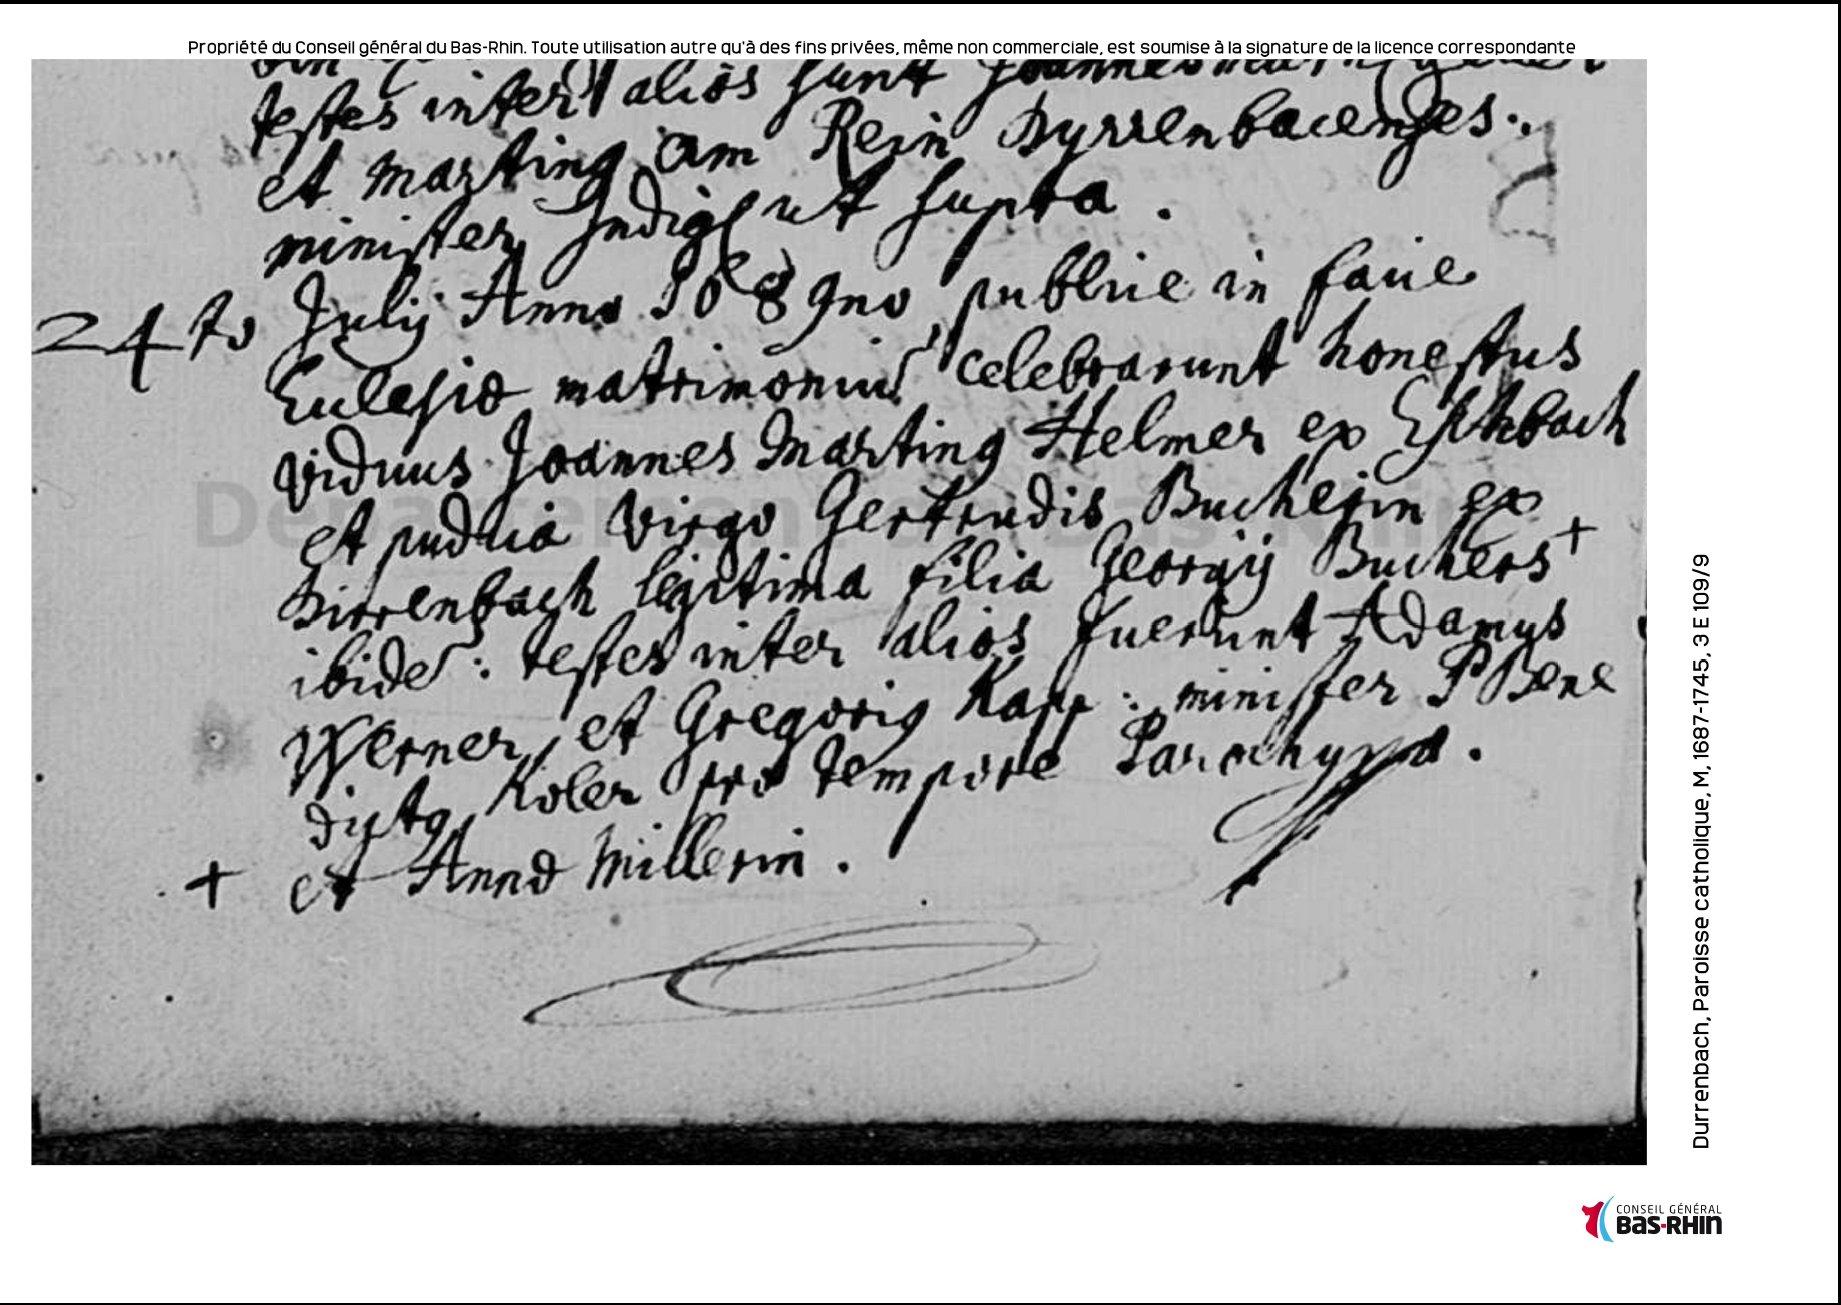 Propriété du Conseil général du Bas-Rhin. Toute utilisation autre qu'à des fins privées, même non commerciale, est soumise à la signature de la licence correspondante
testes inter alios sunt Joannes
et Martinq am Rein Dyrrenbacenses.
minister Indigq ut supra.
24to Julij Anno 1689no publice in facie
Ecclesiae matrimoniu celebrarunt honestus
viduus Joannes Martinq Helmer ex Eschbach
et pudica virgo Gertrudis Bucherin ex
Dirrenbach legitima filia Georgij Buchers +
ibide: testes inter alios fuerunt Adamus
Werner, et Gregoriq Kapp: minister P Bene
dictq Koler pro tempore Parochus
+ et Annae Millerin.
Département du Bas-Rhin
Durrenbach, Paroisse catholique, M, 1687-1745, 3 E 109/9
CONSEIL GÉNÉRAL
BAS-RHIN